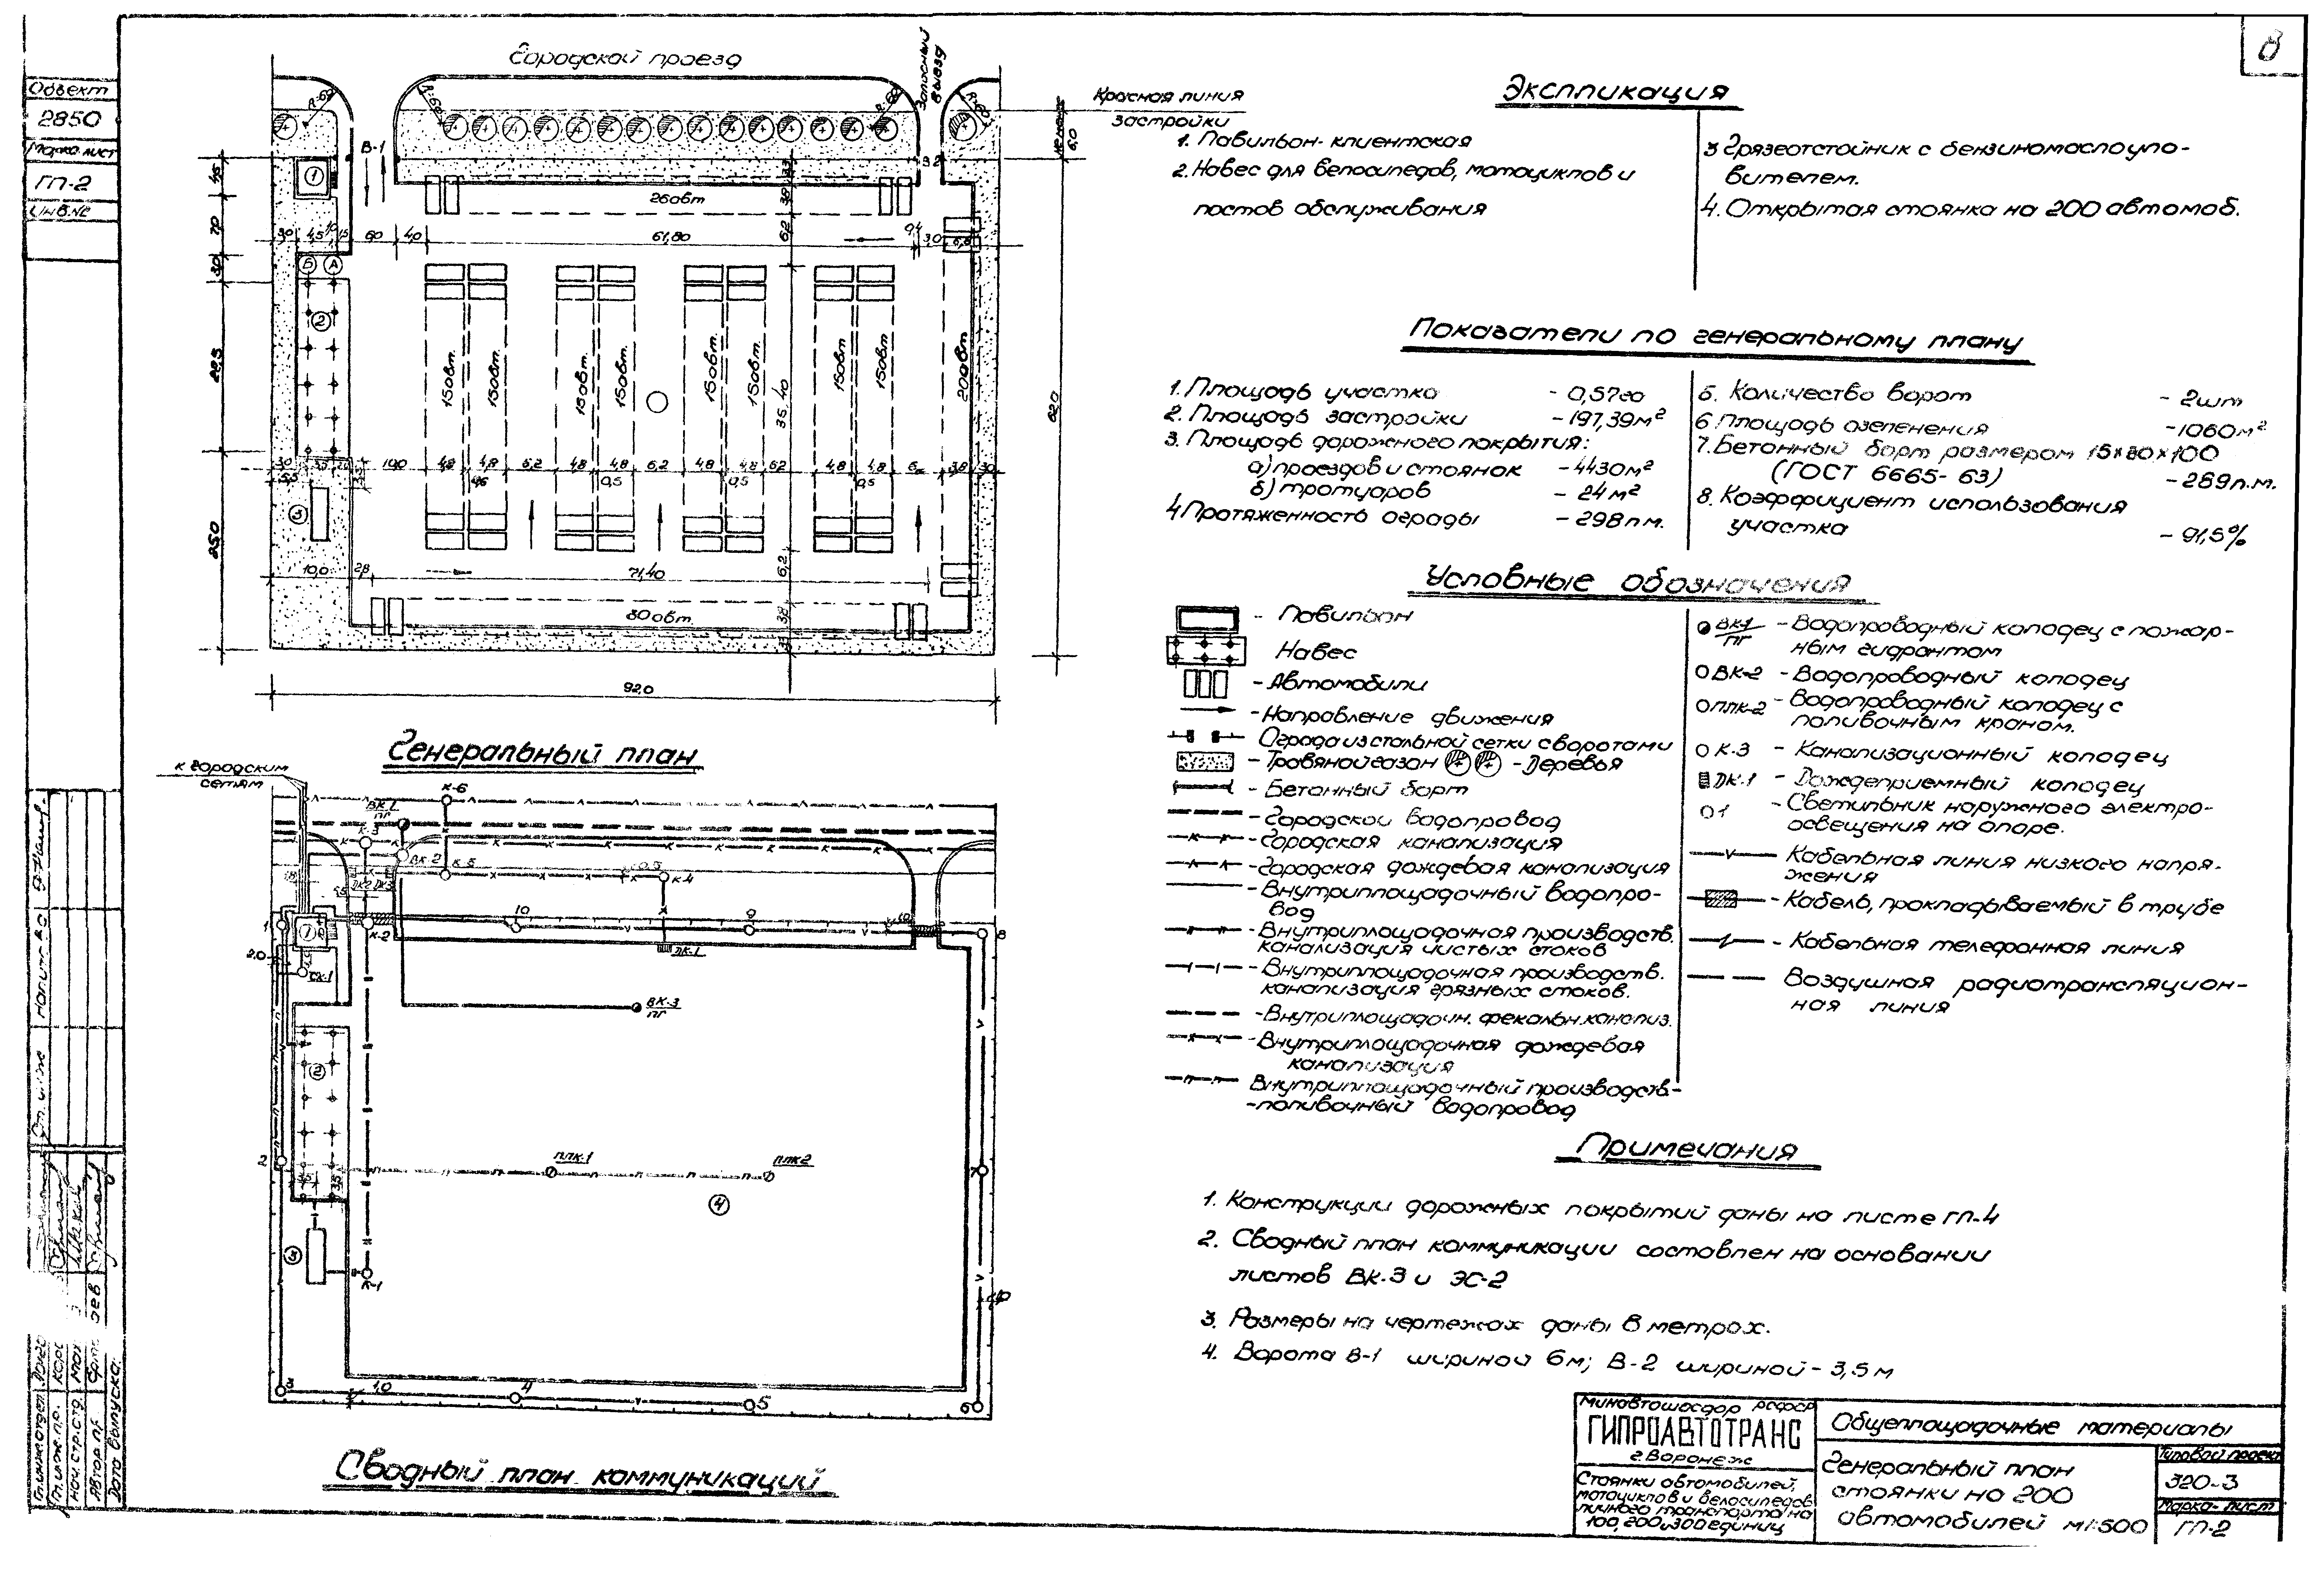 8
Объект
2850
Марка-лист
ГП-2
Инв.№
Городской проезд
Запасный
выезд
Красная линия
застройки
R=60
R=60
R=60
В-1
1
26авт
30
4,5
60
4,0
61,80
6,2
3,0
6,8
Б
А
2
15авт.
15авт.
15авт.
15авт.
15авт.
15авт.
15авт
15авт
20авт
35,40
22,5
7,0
3,0
4,5
25,0
62,0
10,0
4,8
4,8
6,2
4,8
4,8
6,2
4,8
4,8
6,2
4,8
4,8
3,8
3,0
0,5
0,5
0,5
3
10,0
2,8
71,40
6,2
30авт.
3,8
92,0
Генеральный план
к городским
сетям
К-6
ВК-1
ПГ
К-3
ВК-2
К-5
К-4
ДК2
ДК3
1
10
9
8
К-2
ДК-1
2,0
СК-1
ВК-3
ПГ
2
2
ПЛК-1
ПЛК2
7
4
3
К-1
3
1,0
4
5
6
Сводный план коммуникаций
Экспликация
1. Павильон-клиентская
2. Навес для велосипедов, мотоциклов и
постов обслуживания
3 Грязеотстойник с бензиномаслоуло-
вителем.
4. Открытая стоянка на 200 автомоб.
Показатели по генеральному плану
1. Площадь участка - 0,57га
2. Площадь застройки - 197,39м²
3. Площадь дорожного покрытия:
а) проездов и стоянок - 4430м²
б) тротуаров - 24м²
4 Протяженность ограды - 298п.м.
5. Количество ворот - 2шт
6 Площадь озеленения - 1060м²
7. Бетонный борт размером 15×30×100
(ГОСТ 6665-63) - 289п.м.
8. Коэффициент использования
участка - 91,5%
Условные обозначения
- Павильон
Навес
- Автомобили
- Направление движения
Ограда из стальной сетки с воротами
- Травяной газон - Деревья
- Бетонный борт
- Городской водопровод
- Городская канализация
- Городская дождевая канализация
- Внутриплощадочный водопро-
вод
- Внутриплощадочная производств.
канализация чистых стоков
- Внутриплощадочная производств.
канализация грязных стоков.
- Внутриплощадочн. фекальн. канализ.
- Внутриплощадочная дождевая
канализация
Внутриплощадочный производств.-
-поливочный водопровод
ВК-1
ПГ
- Водопроводный колодец с пожар-
ным гидрантом
ВК-2 - Водопроводный колодец
ПЛК-2 - Водопроводный колодец с
поливочным краном.
К-3 - Канализационный колодец
ДК-1 - Дождеприемный колодец
1 - Светильник наружного электро-
освещения на опоре.
Кабельная линия низкого напря-
жения
- Кабель, прокладываемый в трубе
- Кабельная телефонная линия
Воздушная радиотрансляцион-
ная линия
Примечания
1. Конструкции дорожных покрытий даны на листе ГП-4
2. Сводный план коммуникации составлен на основании
листов ВК-3 и ЭС-2
3. Размеры на чертежах даны в метрах.
4. Ворота В-1 шириной 6м; В-2 шириной - 3,5м
Минавтошосдор РСФСР
ГИПРОАВТОТРАНС
г. Воронеж
Стоянки автомобилей,
мотоциклов и велосипедов
личного транспорта на
100, 200 и 300 единиц
Общеплощадочные материалы
Генеральный план
стоянки на 200
автомобилей м1:500
Типовой проект
320-3
Марка-лист
ГП-2
Дата выпуска: